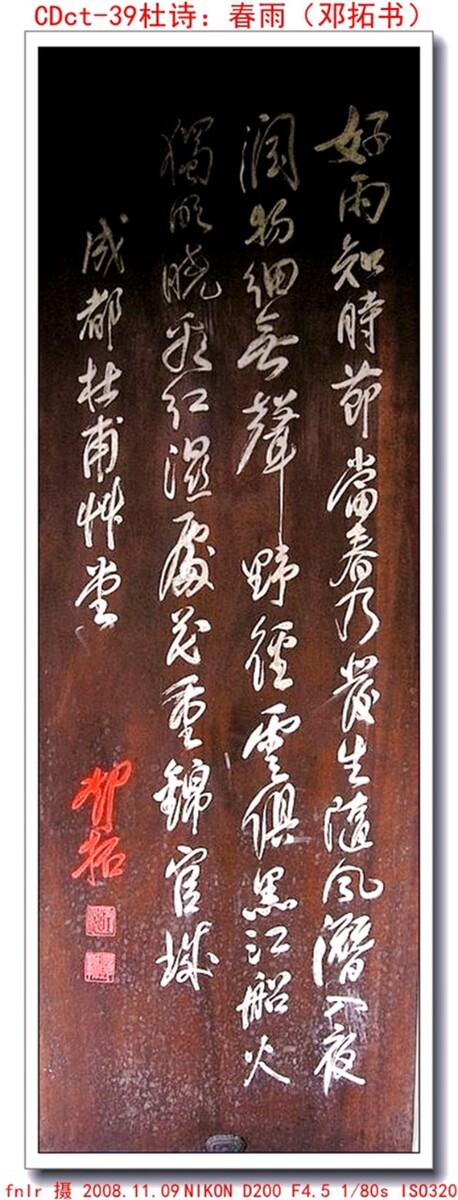 CDct-39杜诗：春雨（邓拓书）
好雨知時節當春乃發生隨風潛入夜
润物细無聲野徑雲俱黑江船火
獨明曉看红濕處花重錦官城
成都杜甫艸堂
邓拓
fnlr 摄 2008.11.09 NIKON D200 F4.5 1/80s ISO320